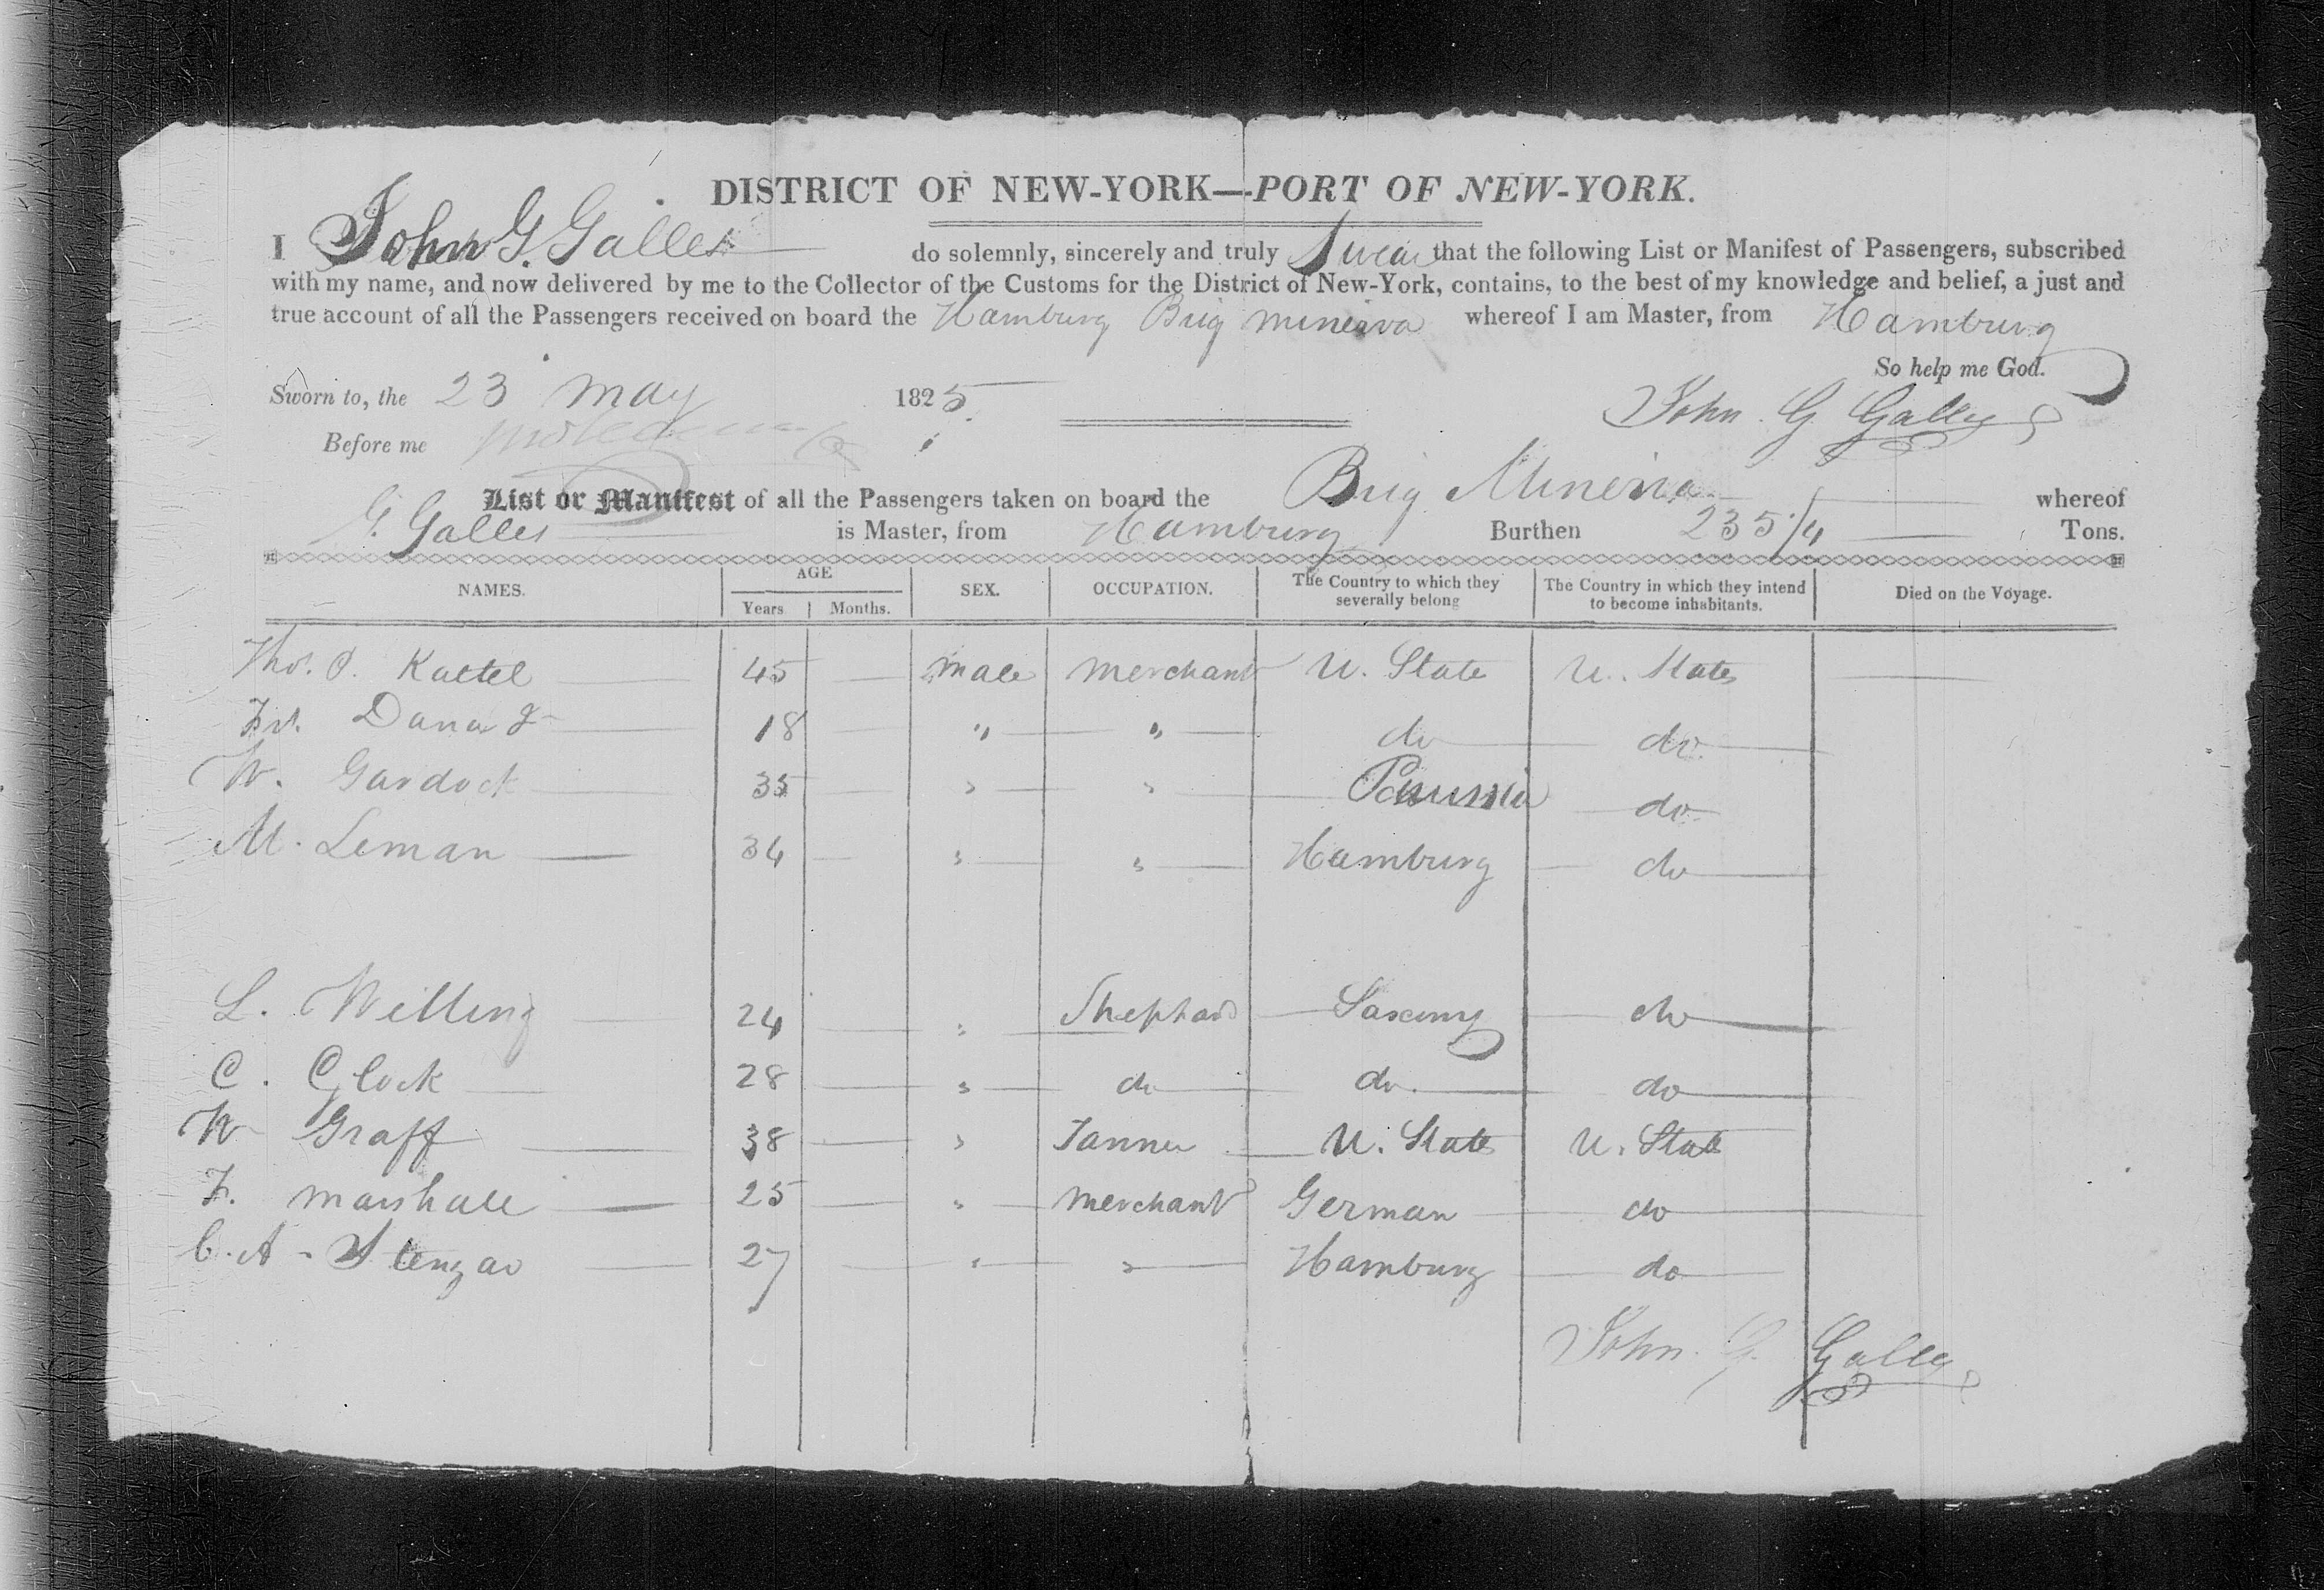 DISTRICT OF NEW-YORK—PORT OF NEW-YORK.
I John G. Galles do solemnly, sincerely and truly Swear that the following List or Manifest of Passengers, subscribed
with my name, and now delivered by me to the Collector of the Customs for the District of New-York, contains, to the best of my knowledge and belief, a just and
true account of all the Passengers received on board the Hamburg Brig Minerva whereof I am Master, from Hamburg
So help me God.
Sworn to, the 23 May 1825
John. G. Galles
Before me
List or Manifest of all the Passengers taken on board the Brig Minerva whereof
G. Galles is Master, from Hamburg Burthen 235/4 Tons.
NAMES. AGE SEX. OCCUPATION. The Country to which they severally belong The Country in which they intend to become inhabitants. Died on the Voyage.
Years Months.
Thos. P. Kattel 45 male merchant U. State U. States
Dana 18 " " do do
W. Gardock 35 " " do
M. Leman 34 " " Hamburg do
L. Willing 24 " Shephard Saxony do
C. Glock 28 " do do do
W Graff 38 " Tanner U. States U. State
F. Marshall 25 " merchant German do
C. A. Stenzar 27 " " Hamburg do
John. G. Galles